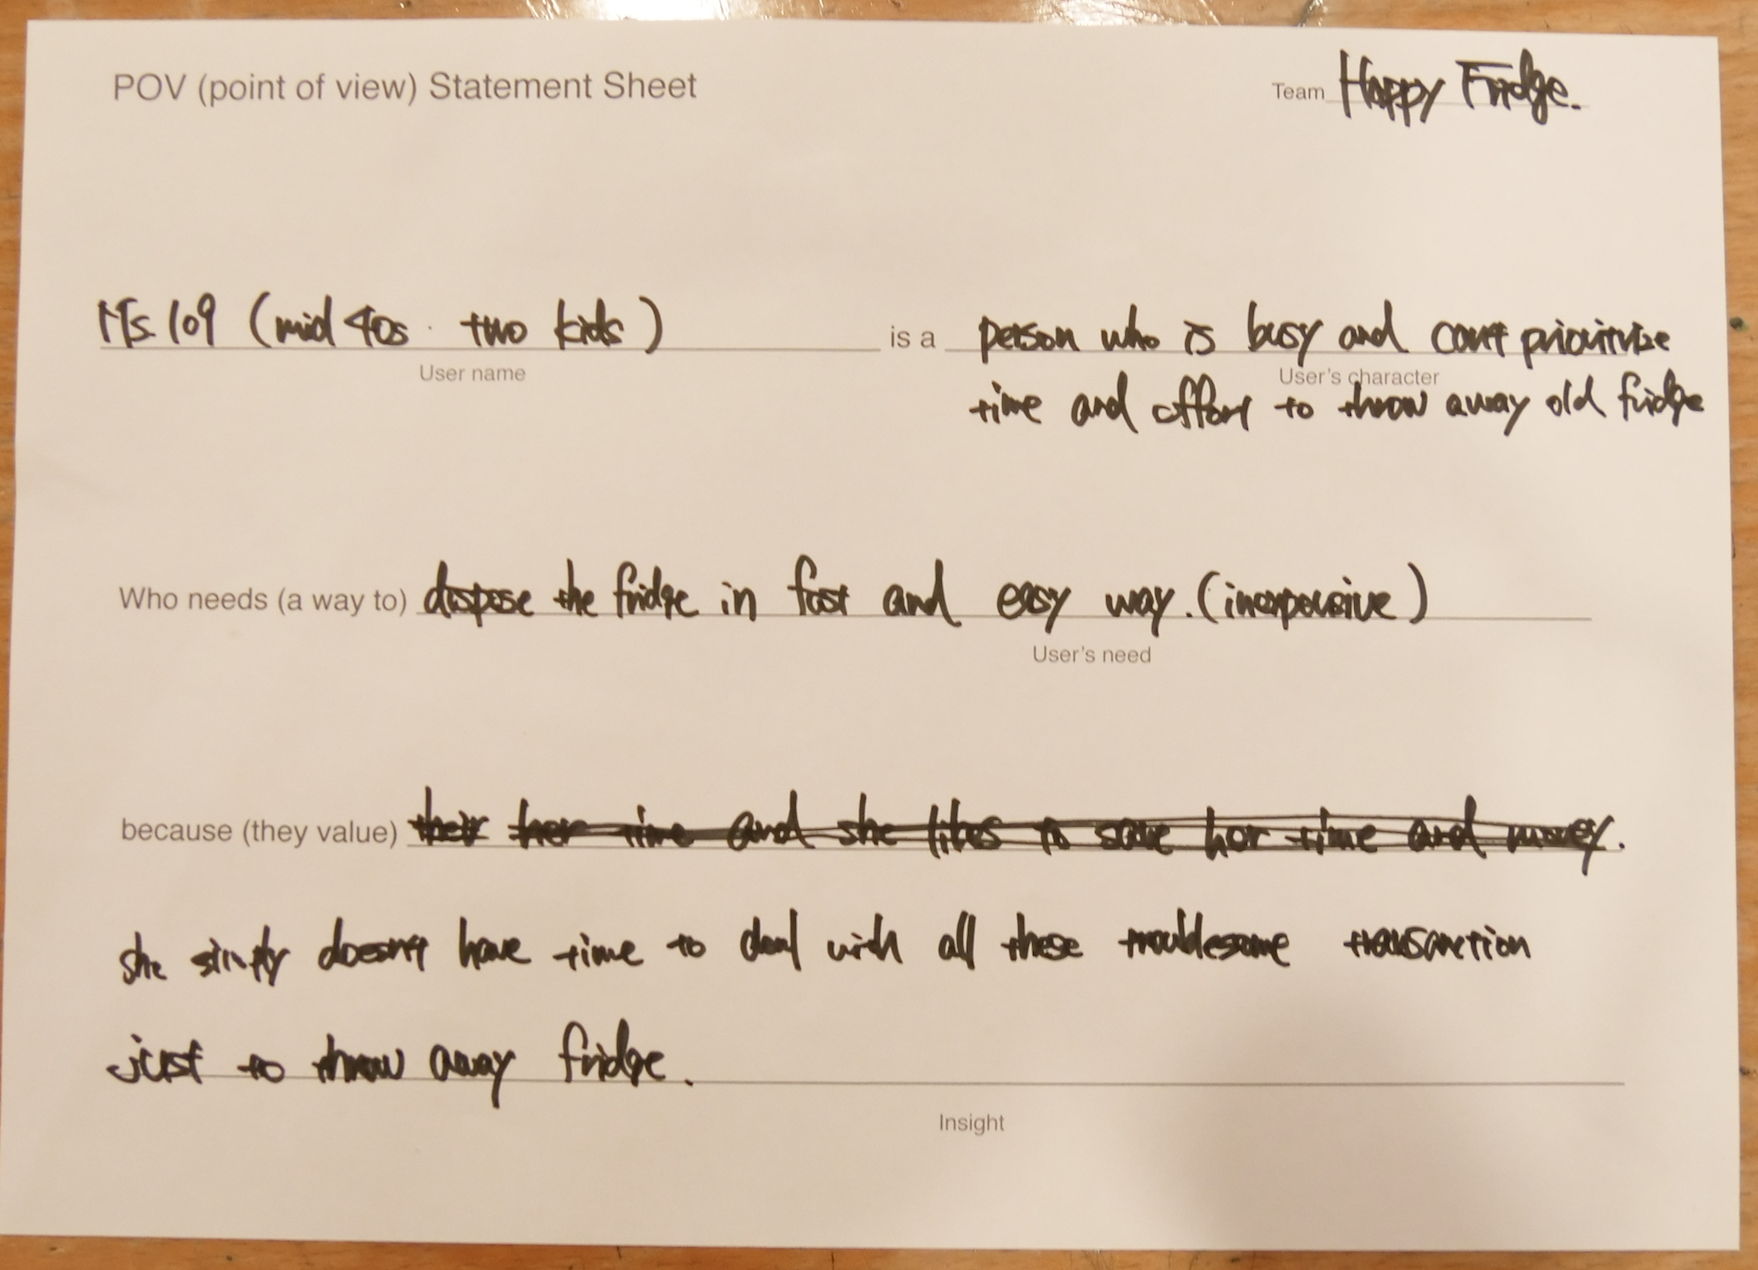 POV (point of view) Statement Sheet
Team Happy Fridge.
Ms. 109 (mid 40s. two kids) is a person who is busy and can't prioritize
User name
User's character
time and effort to throw away old fridge
Who needs (a way to) dispose the fridge in fast and easy way. (inexpensive)
User's need
because (they value) their her time and she likes to save her time and money.
she simply doesn't have time to deal with all these troublesome transanction
just to throw away fridge.
Insight